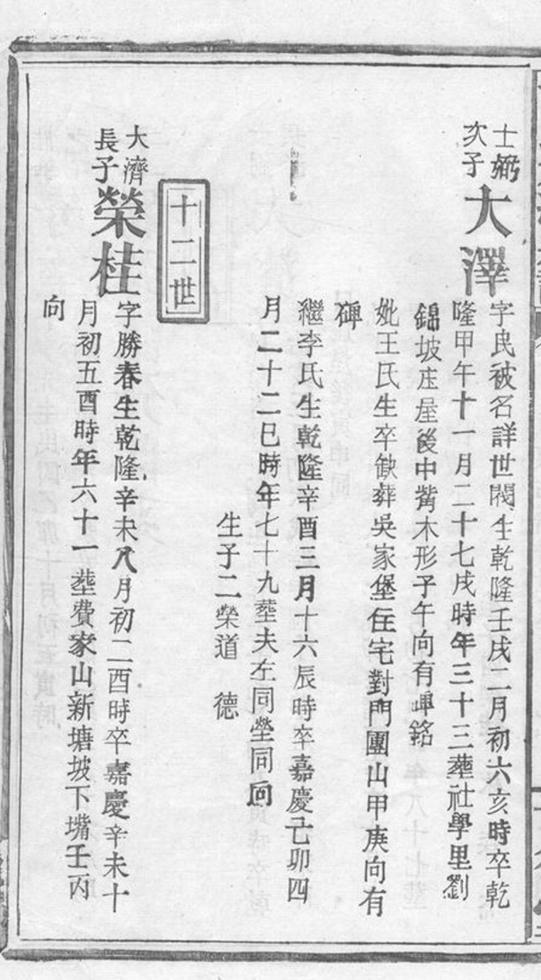 士
次子
大澤
字民被名詳世閥生乾隆壬戌二月初六亥時卒乾
隆甲午十一月二十七戌時年三十三塟社學里劉
錦坡庄屋後中嘴木形子午向有碑銘
妣王氏生卒缺葬吳家堡住宅對門團山甲庚向有
碑
繼李氏生乾隆辛酉三月十六辰時卒嘉慶己卯四
月二十二巳時年七十九塟夫左同塋同向
生子二榮道 德
十二世
大濟
長子
榮桂
字勝春生乾隆辛未八月初二酉時卒嘉慶辛未十
月初五酉時年六十一塟費家山新塘坡下嘴壬丙
向